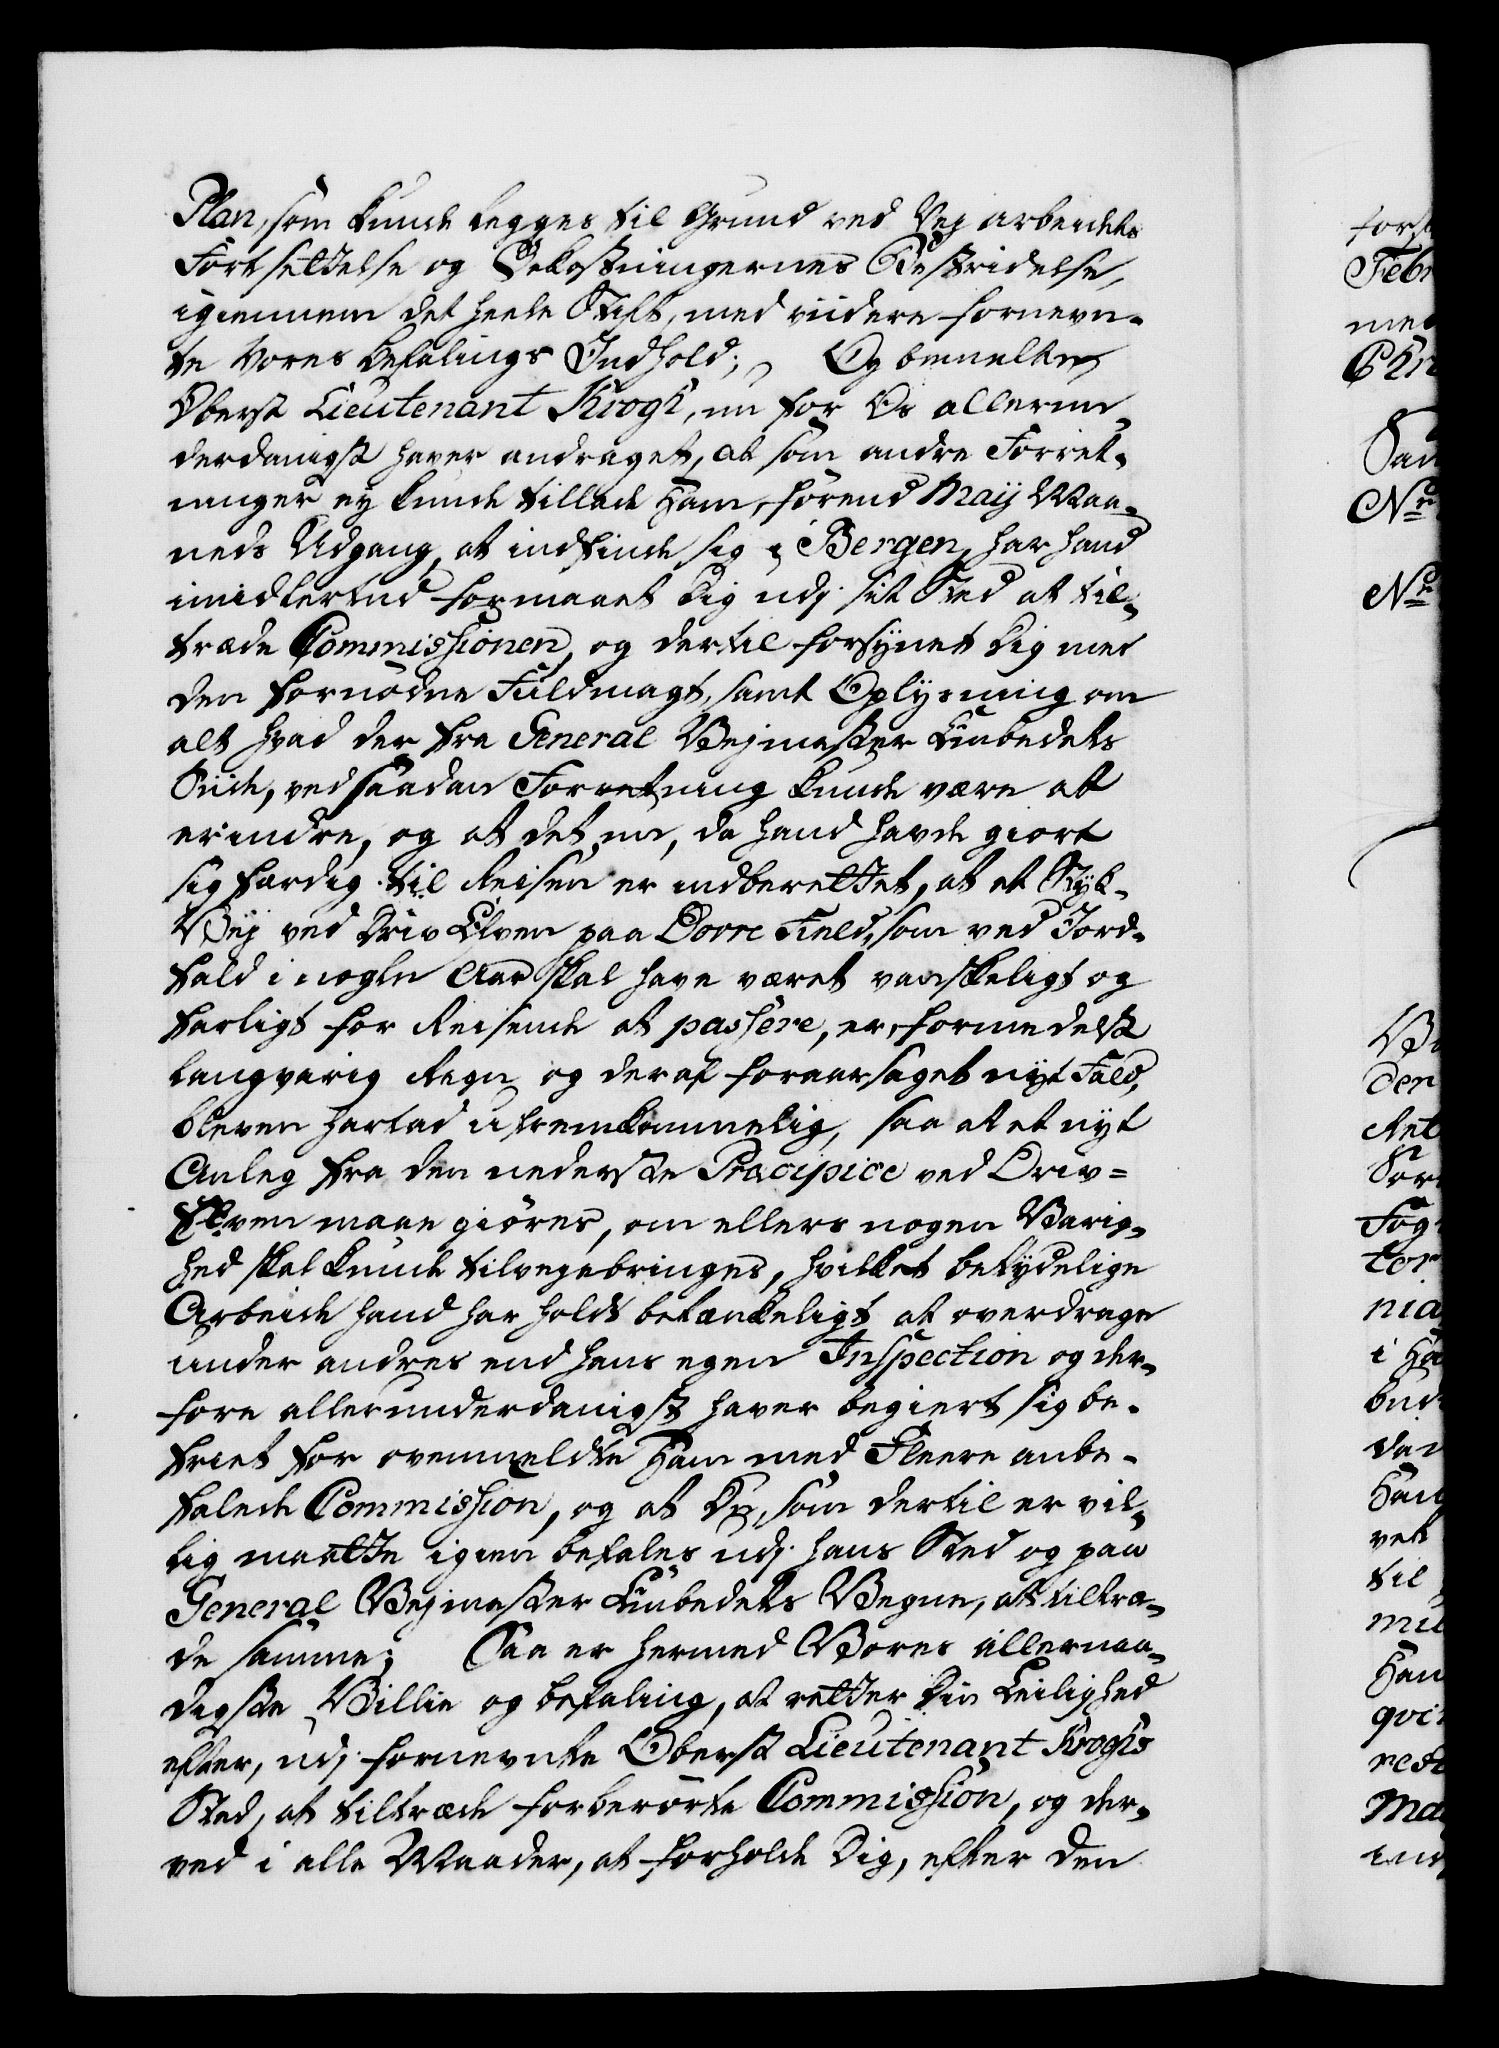 Plan, som kunde legges til Grund ved Vej arbeidets
Fortsettelse og Bekostningernes Bestridelse,
igiennem det heele Stift, med viidere fornevn-
te Vores Befalings Indhold; Og bemelte
Oberst Lieutenant Krogh, nu for Os allerun-
derdanigst haver andraget, at som andre Forret-
ninger ey kunde tillade Ham, førend Maij Maa-
neds Udgang, at indfinde sig i Bergen, har hand
imidlertiid formaaet Dig udj sit Sted at til-
træde Commissionen, og dertil forsynet Dig med
den fornødne Fuldmagt, samt Oplysning om
alt hvad der fra General Vejmester Embedets
Siide, ved saadan Forretning kunde være at
erindre, og at det nu, da hand havde giort
sig færdig til Reisen er indberettet, at et Stÿk-
Veÿ ved Driv Elven paa Dovre Field, som ved Jord-
fald i nogle Aar skal have været vanskeligt og
farligt for Reisende at passere, er formedelst
langvarig Regn og deraf foraarsaget nyt Fald,
bleven hartad ufremkommelig, saa at et nyt
Anleg fra den nederste Præcipice ved Driv=
Elven maae giøres, om ellers nogen Varig-
hed skal kunde tilvejebringes, hvilket betydelige
Arbeide hand har holdt betænkeligt at overdrage
under andres end hans egen Inspection og der-
fore allerunderdanigst haver begiert sig be-
friet for ovenmeldte Ham med Fleere anbe-
falede Commission, og at Du, som dertil er vil-
lig maatte igien befales udj hans Sted og paa
General Vejmester Embedets Vegne, at tiltræ-
de samme; Saa er hermed Vores allernaa-
digste Villie og befaling, at retter Din Leilighed
efter, udj fornevnte Oberst Lieutenant Kroghs
Sted, at tiltræde forberørte Commission, og der-
ved i alle Maader, at forholde Dig, efter den